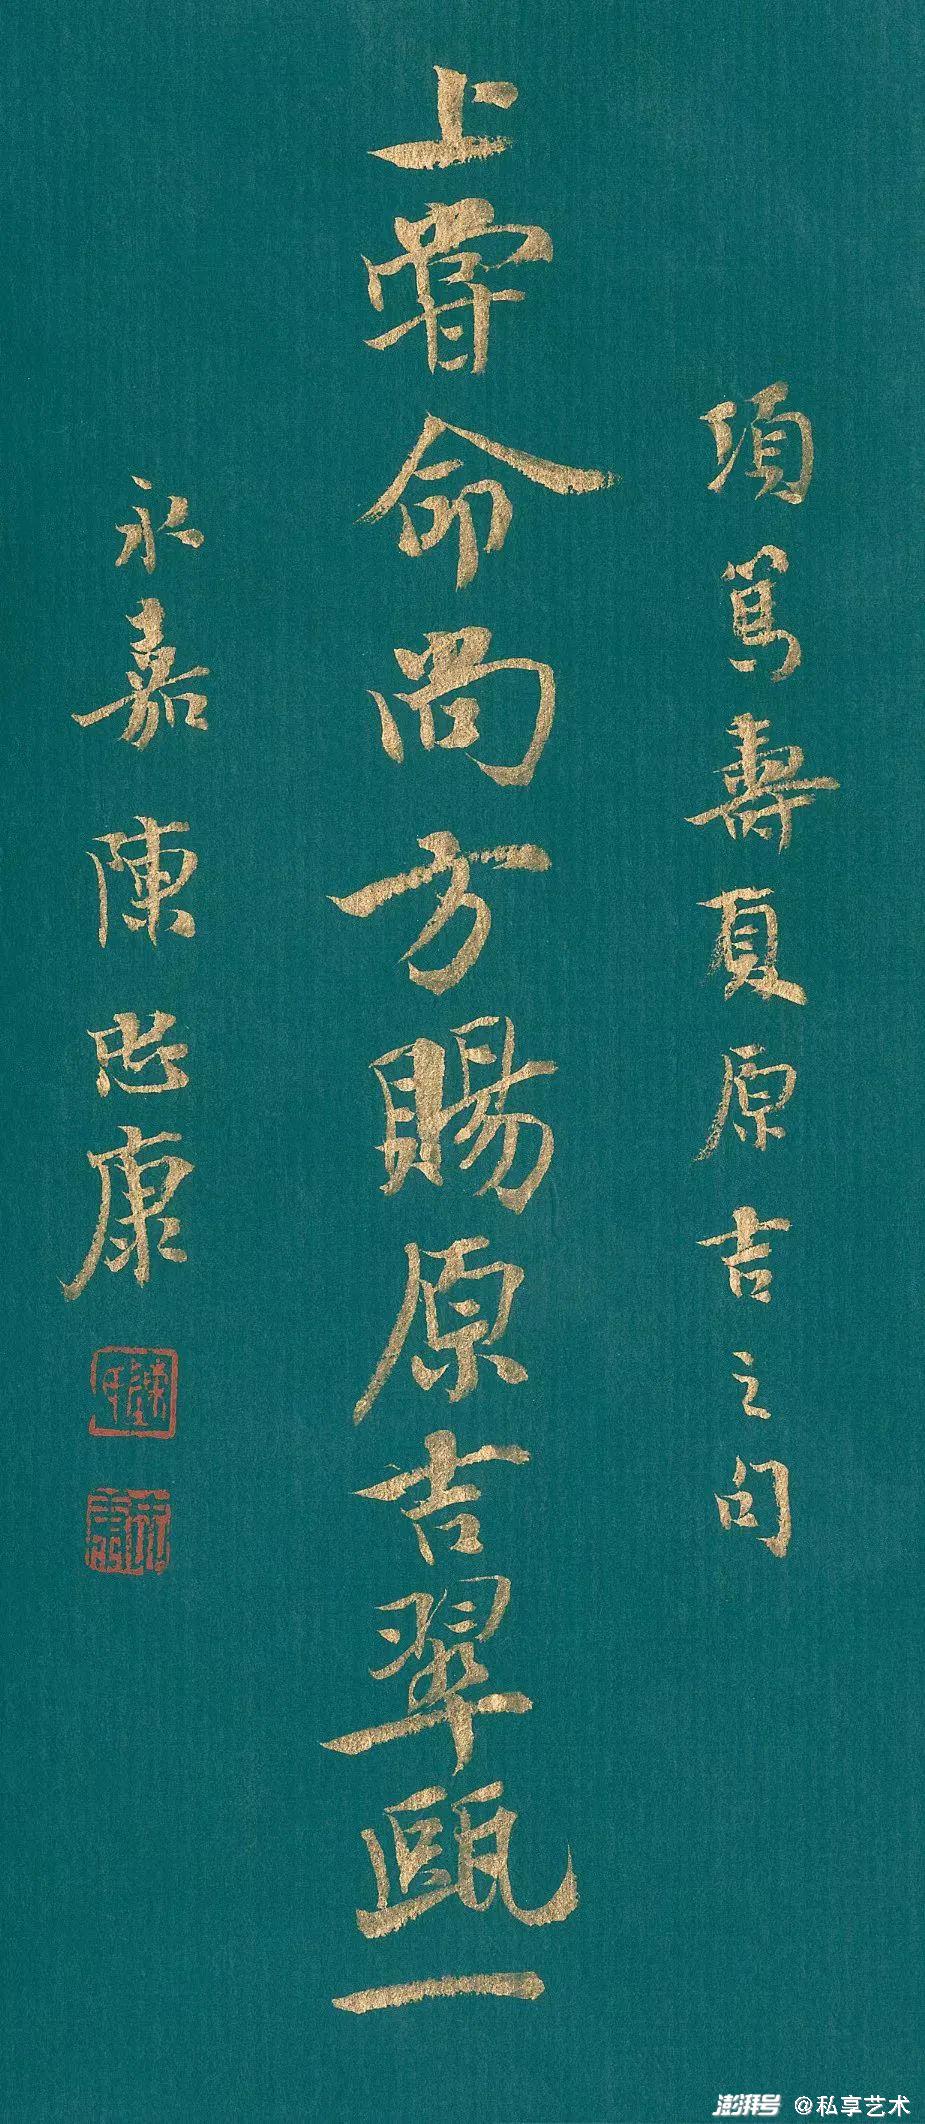 項篤壽夏原吉之句
上甞命尚方賜原吉翠甌一
永嘉陳忠康
澎湃号 @私享艺术